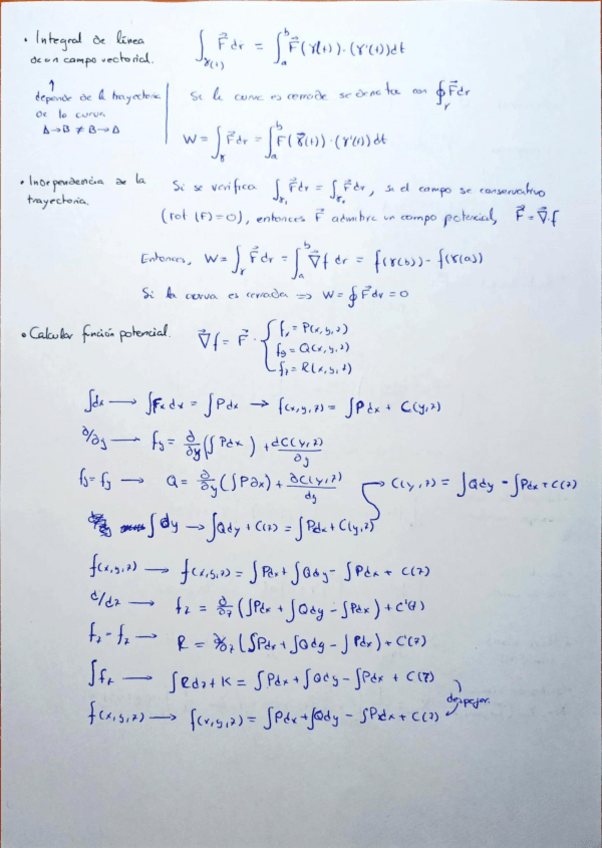 • Integral de línea ∫γ(t) F⃗ dr = ∫ₐᵇ F⃗(γ(t))·(γ'(t))dt
de un campo vectorial.
↑
depende de la trayectoria
de la curva
A→B ≠ B→A
Si la curva es cerrada se denota con ∮γ F⃗dr
W = ∫γ F⃗dr = ∫ₐᵇ F(γ⃗(t))·(γ'(t))dt
• Independencia de la
trayectoria.
Si se verifica ∫γ₁ F⃗dr = ∫γ₂ F⃗dr, si el campo es conservativo
(rot (F)=0), entonces F⃗ admite un campo potencial, F⃗ = ∇⃗f
Entonces, W = ∫γ F⃗dr = ∫ₐᵇ ∇⃗f dr = f(γ(b)) - f(γ(a))
Si la curva es cerrada => W = ∮ F⃗dr = 0
• Calcular función potencial. ∇⃗f = F⃗ · { fx = P(x,y,z)
fy = Q(x,y,z)
fz = R(x,y,z)
∫dx → ∫Fx dx = ∫Pdx → f(x,y,z) = ∫Pdx + C(y,z)
∂/∂y → fy = ∂/∂y (∫Pdx) + dC(y,z)/∂y
fy = fy → Q = ∂/∂y (∫P∂x) + ∂C(y,z)/dy → C(y,z) = ∫Qdy - ∫Pdx + C(z)
∫dy → ∫Qdy + C(z) = ∫Pdx + C(y,z)
f(x,y,z) → f(x,y,z) = ∫Pdx + ∫Qdy - ∫Pdx + C(z)
d/dz → fz = ∂/∂z (∫Pdx + ∫Qdy - ∫Pdx) + C'(z)
fz - fz → R = ∂/∂z (∫Pdx + ∫Qdy - ∫Pdx) + C'(z)
∫fz → ∫Rdz + K = ∫Pdx + ∫Qdy - ∫Pdx + C(z)
despejar.
f(x,y,z) → f(x,y,z) = ∫Pdx + ∫Qdy - ∫Pdx + C(z)